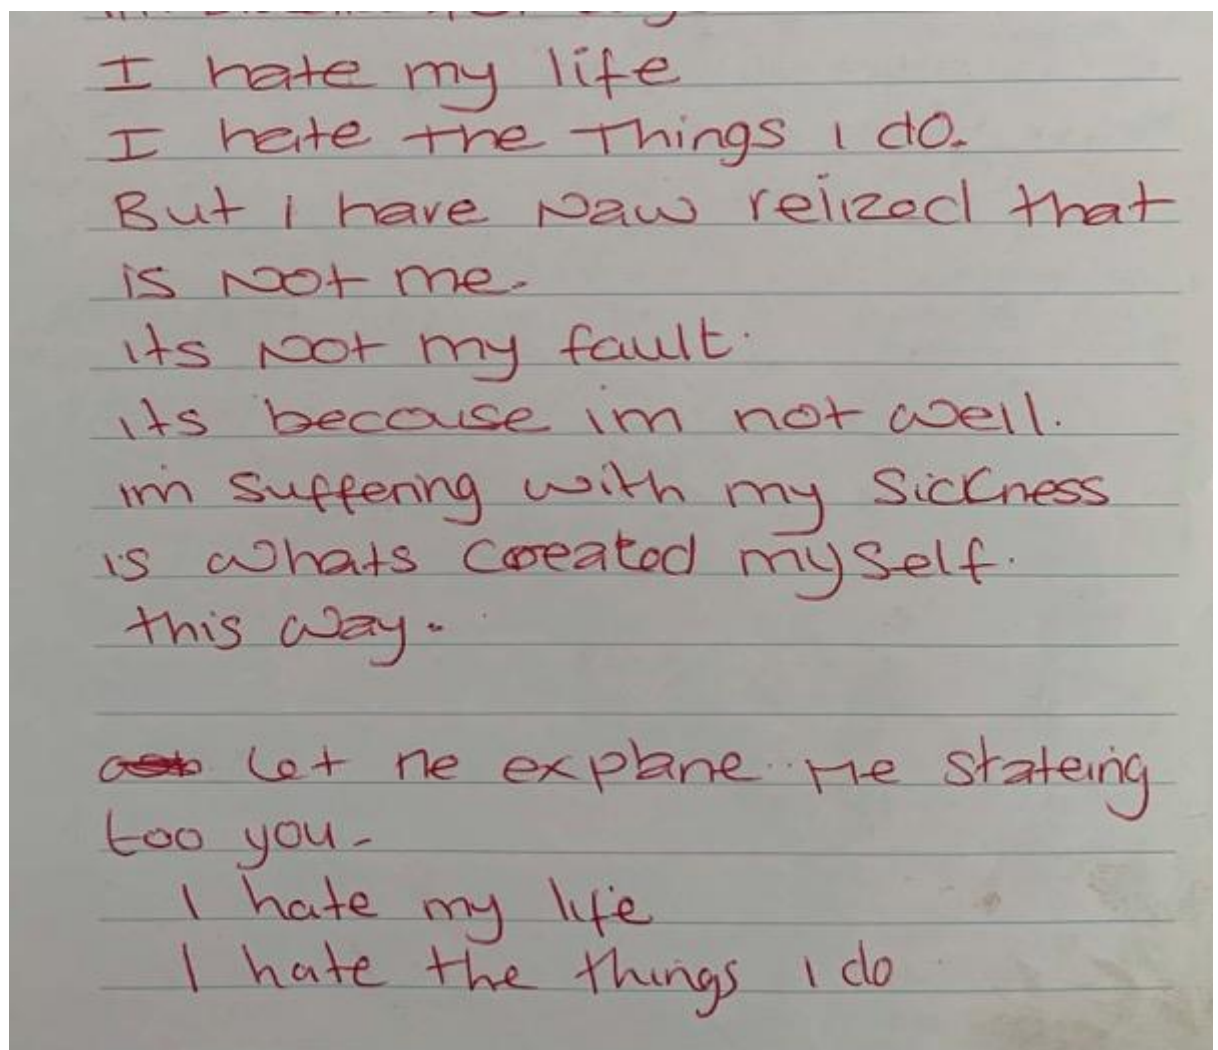 I hate my life
I hate the Things I do.
But I have Naw reiized that
is Not me.
its Not my fault.
its because im not well.
im suffering with my Sickness
is whats Coreated myself.
this way.
Let ne explane Me stateing
too you.
I hate my life
I hate the things I do